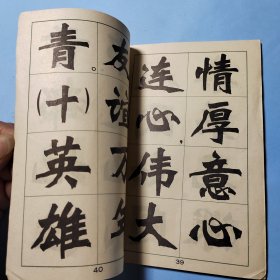 情厚意心
连心，伟大
39
友谊万年
青。（十）英雄
40